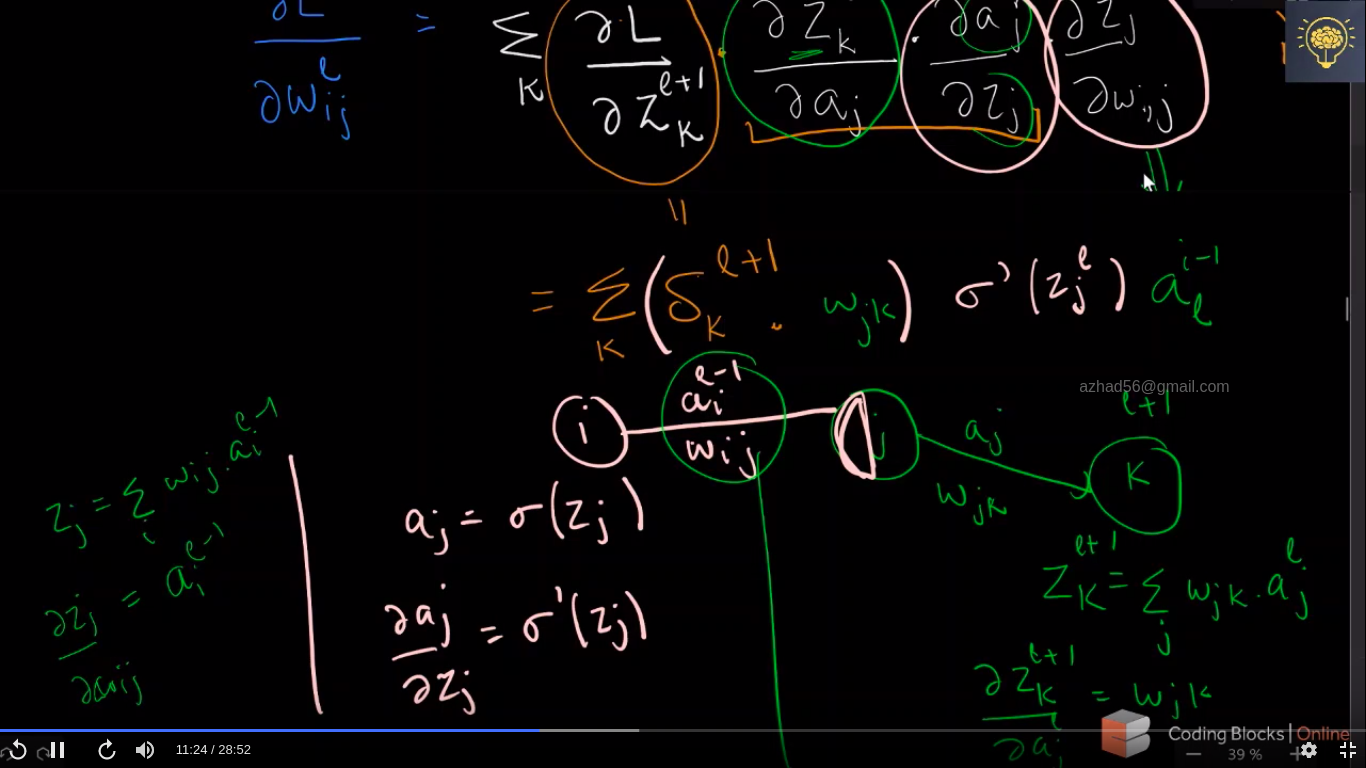 ∂L/∂w_ij^l = Σ_K ∂L/∂Z_K^{l+1} · ∂Z_k/∂a_j · ∂a_j/∂z_j ∂z_j/∂w_i,j
= Σ_K (δ_K^{l+1} · w_jk) σ'(z_j^l) a_l^{i-1}
azhad56@gmail.com
i
a_i^{l-1}
w_ij
j
a_j
w_jk
l+1
K
z_j = Σ_i w_ij · a_i^{l-1}
∂z_j/∂w_ij = a_i^{l-1}
a_j = σ(z_j)
∂a_j/∂z_j = σ'(z_j)
Z_K^{l+1} = Σ_j w_jk · a_j^l
∂Z_K^{l+1}/∂a_j^l = w_jk
Coding Blocks | Online
11:24 / 28:52
39 %